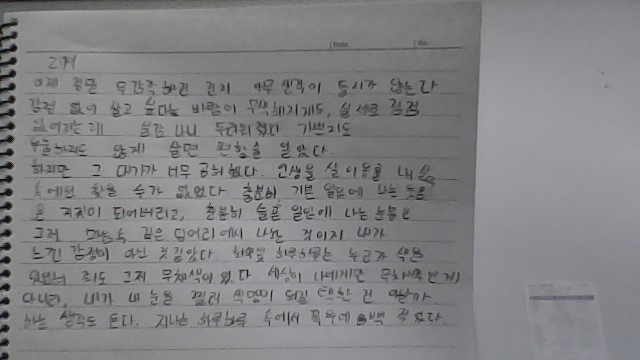 이제 정말 무감각해진 건지 아무 생각이 들지가 않는다
감정 없이 살고 싶다는 바람이 무색해지게도, 실제로 점점
없어지는 게 느껴지니 두려워졌다 기쁘지도
우울하지도 않게 살면 편할줄 알았다.
하지만 그 대가가 너무 공허했다. 인생을 살 이유를 내 삶
속에선 찾을 수가 없었다 충분히 기쁜 일임에 나는 웃음
은 거짓이 되어버리고, 충분히 슬픈 일임에 나는 눈물은
그저 마음속 깊은 덩어리에서 나오는 것이지 내가
느낀 감정이 아닌 것 같았다 하루하루는 누군가 색을
죄도 그저 무채색이었다 세상이 나에게만 무채색인게
아니라, 내가 내 눈을 찔러 색맹이 되길 택한 건 아닐까
하는 생각도 든다. 지나는 하루하루 속에서